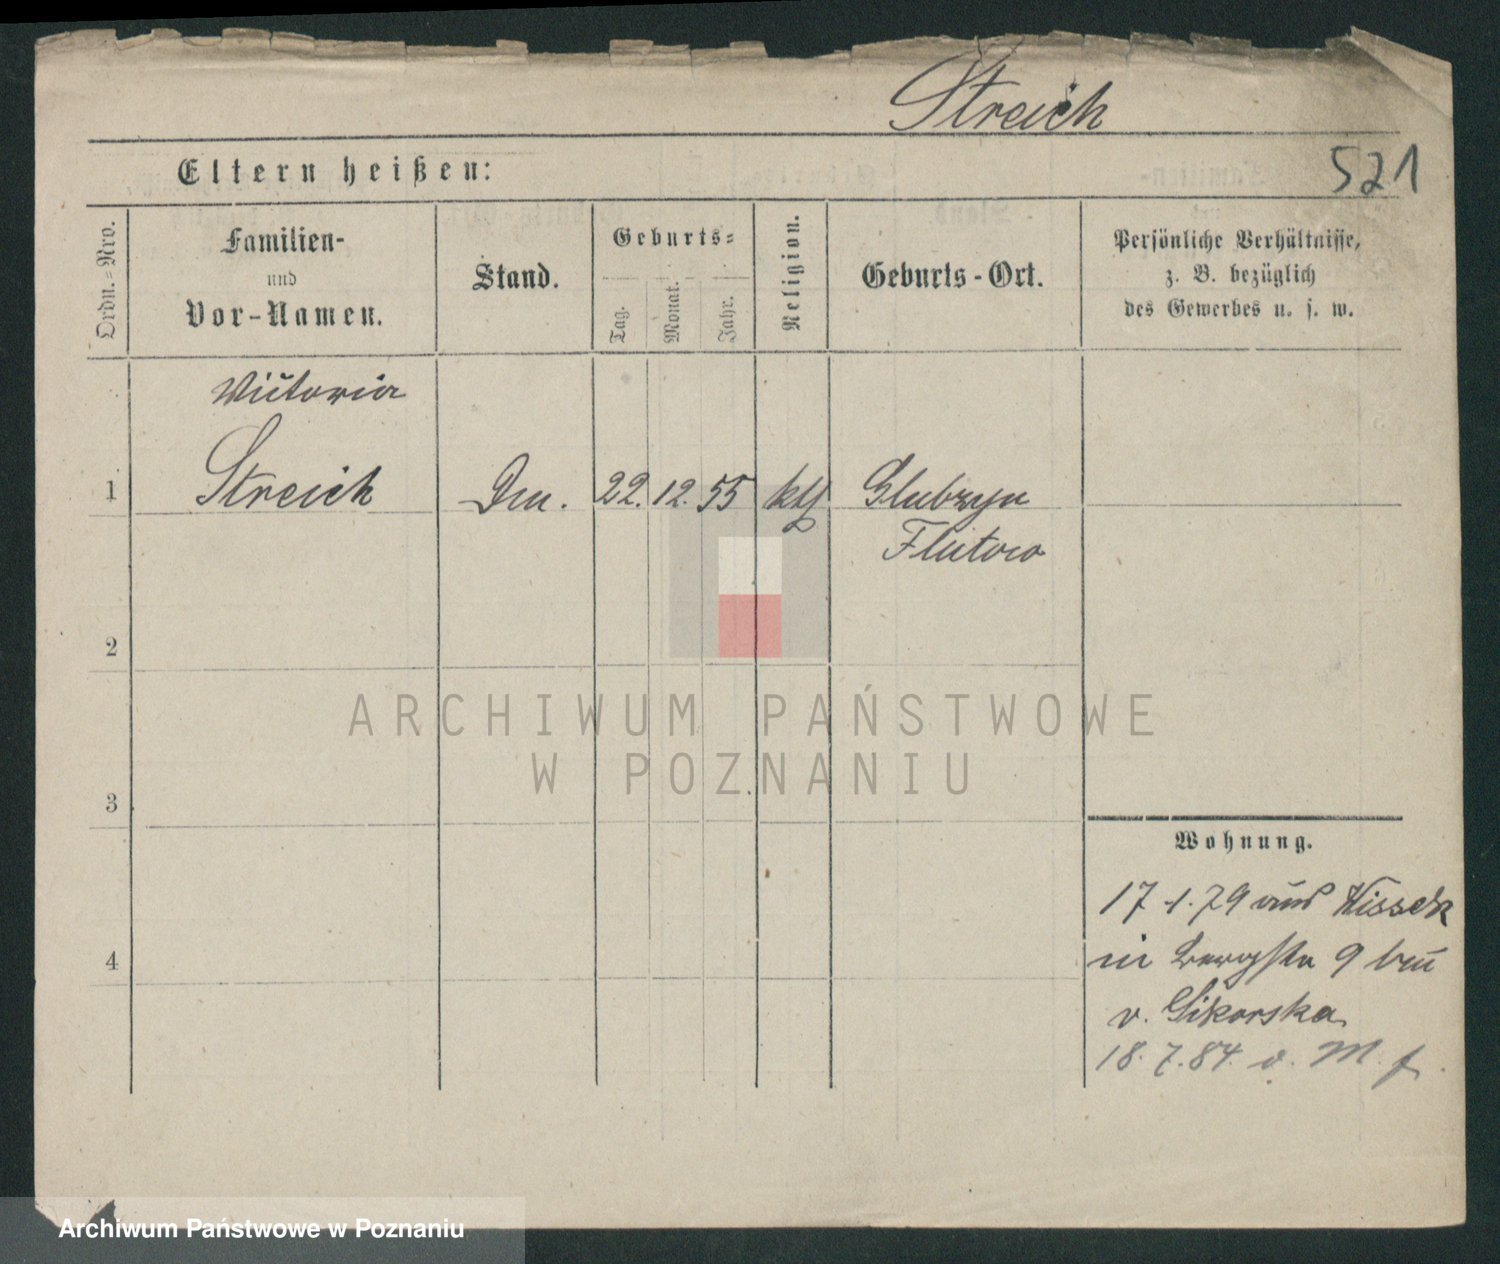 Streich
521
Eltern heißen:
Ordn.=Nro.
Familien-
und
Vor-Namen.
Stand.
Geburts=
Tag.
Monat.
Jahr.
Religion.
Geburts-Ort.
Persönliche Verhältnisse,
z. B. bezüglich
des Gewerbes u. s. w.
Victoria
1 Streich 22. 12. 55 kth Glubczyn
Flatow
2
3
4
Wohnung.
17.1.79 aus Wissek
in Bergstr 9 bei
v. Sikorska
18.7.84. v. M. f.
ARCHIWUM PAŃSTWOWE
W POZNANIU
Archiwum Państwowe w Poznaniu